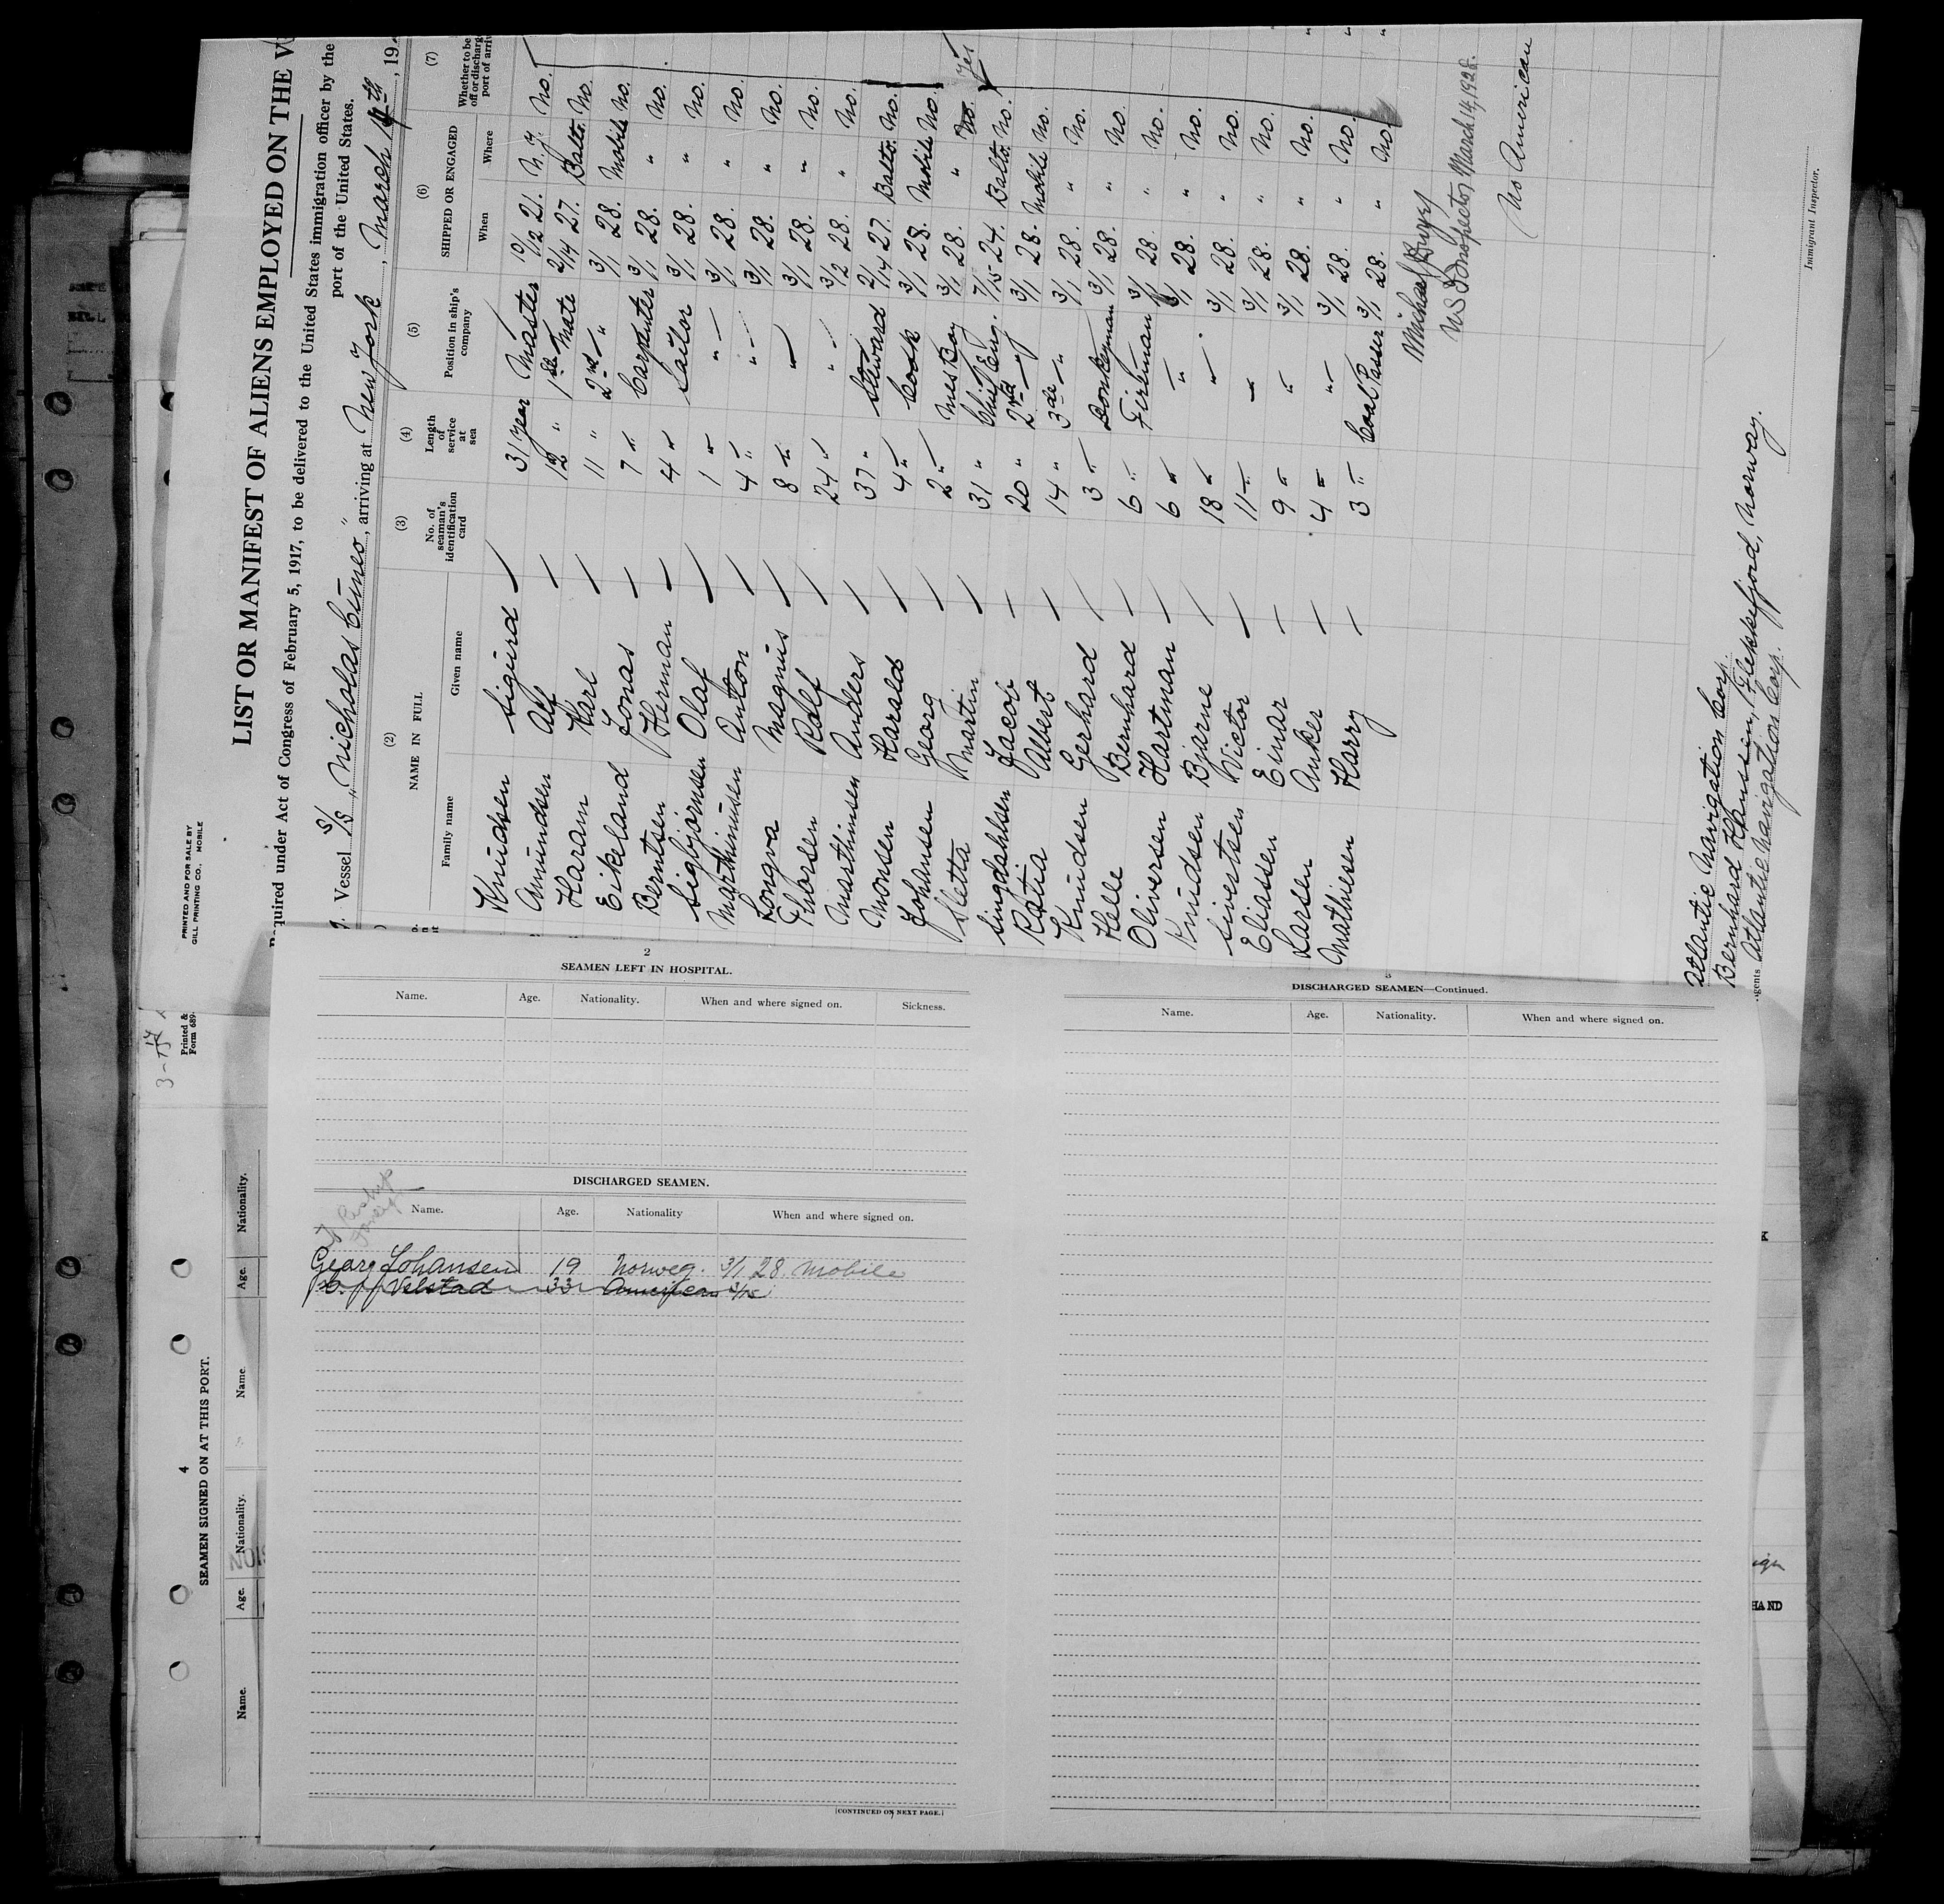 PRINTED AND FOR SALE BY
GILL PRINTING CO., MOBILE
LIST OR MANIFEST OF ALIENS EMPLOYED ON THE
Required under Act of Congress of February 5, 1917, to be delivered to the United States immigration officer by the
port of the United States.
Vessel S/S "Nicholas Cuneo", arriving at New York, March 14th, 19
(2) (3) (4) (5) (6) (7)
NAME IN FULL No. of seaman's identification card Length of service at sea Position in ship's company SHIPPED OR ENGAGED Whether to be
Family name Given name When Where port of
Knudsen Sigurd 31 year Master 10/12 21. N.Y. No.
Amundsen Alf 12 " 1st Mate 2/14 27. Balto. No.
Haram Karl 11 " 2nd " 3/1 28. Mobile No.
Eikeland Jonas 7 " Carpenter 3/1 28. " No.
Berntsen Herman 4 " Sailor 3/1 28. " No.
Sigbjørnsen Olaf 1 " " 3/1 28. " No.
Marthinussen Anton 4 " " 3/1 28. " No.
Longva Magnus 8 " " 3/1 28. " No.
Thorsen Rolf 24 " " 3/2 28. " No.
Marthinsen Anders 37 " Steward 2/14 27. Balto. No.
Monsen Harald 4 " Cook 3/1 28. Mobile No.
Johansen Georg 2 " Mess Boy 3/1 28. " No. Yes
Sletta Martin 31 " Chief Eng. 7/15 24. Balto. No.
Singdahlsen Jacob 20 " 2nd " 3/1 28. Mobile No.
Albert 14 " 3rd " 3/1 28. " No.
Knudsen Gerhard 3 " Donkeyman 3/1 28. " No.
Helle Bernhard 6 " Fireman 3/1 28. " No.
Oliversen Hartman 6 " " 3/1 28. " No.
Knudsen Bjarne 18 " " 3/1 28. " No.
Sivertsen Victor 11 " " 3/1 28. " No.
Eliassen Einar 9 " " 3/1 28. " No.
Larsen Anker 4 " " 3/1 28. " No.
Mathiesen Harry 3 " Coal Passer 3/1 28. " No.
Michael
US Inspector March 14, 1928.
No American
Atlantic Navigation Corp.
Bernhard Hanssen, Flekkefjord, Norway.
Agents Atlantic Navigation Corp.
Immigrant Inspector.
2
SEAMEN LEFT IN HOSPITAL.
Name. Age. Nationality. When and where signed on. Sickness.
DISCHARGED SEAMEN.
Name. Age. Nationality When and where signed on.
Georg Johansen 19 Norweg. 3/1 28. Mobile
Velstad 33 American
[CONTINUED ON NEXT PAGE.]
3
DISCHARGED SEAMEN—Continued.
Name. Age. Nationality. When and where signed on.
Printed &
Form 689
4
SEAMEN SIGNED ON AT THIS PORT.
Name. Age. Nationality. Name. Age. Nationality.
HAND